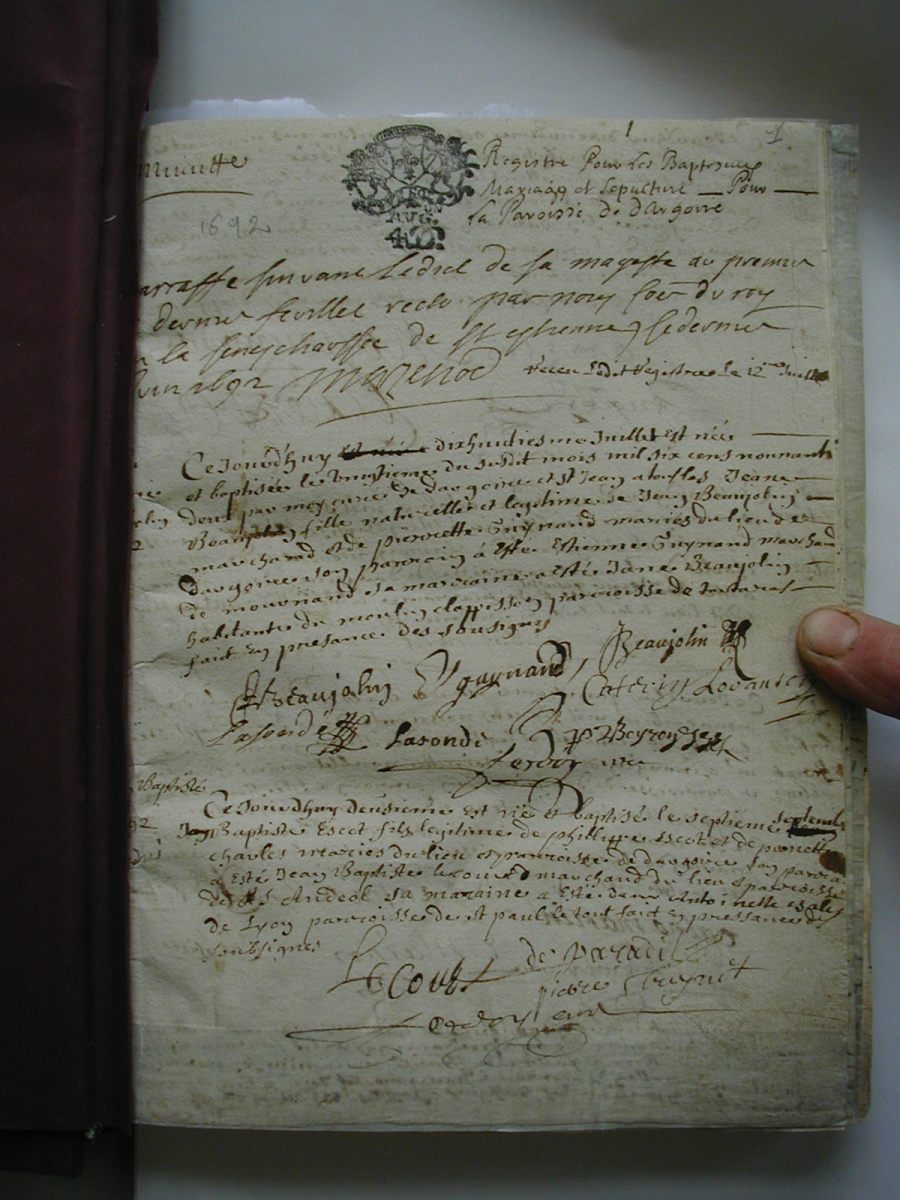 1
1
Minutte
Registre Pour Les Baptesmes
Mariages et Sepulture Pour
la Paroisse de dargoire
1692
parraffe suivant Ledict de sa mageste au premier
dernier feuillet recto par nous du roy
la seneschaussée de st estienne, le dernier
juin 1692 Mazenod receu ledit Registre Le 12me Juillet
Ce Jourdhuy dixhuitiesme Juillet Est née
et baptisée le vingtieme du susdit mois mil six cens nonnante
deux par moy curé de dargoire et st Jean a toussas Jeane
Beaujolin fille naturelle et legitime de Jean Beaujolin
marchand et de pierrette Guynand mariés du lieu de
dargoire son parrain à Esté Estienne Guynand marchand
de mournand sa marraine a Esté Jane Beaujolin
habitante du moulin parroisse de tartaras
fait En presance des sousignes
Beaujolin guynand Beaujolin
Lasonde Caterin
Lasonde
Baptiste
Ce Jourdhuy deusieme Est né et baptisé le septieme septembre
Jean Baptiste Escot fils legitime de phillippe Escot et de pierrette
charles mariés du lieu et parroisse de dargoire son parrain
a Esté Jean Baptiste Lecourt marchand du lieu et parroisse
de St Andeol sa maraine a Esté dame Antoinette
de Lyon parroisse de st paul le tout fait En pressance des
soubsignes
Lecourt de paradi
piere